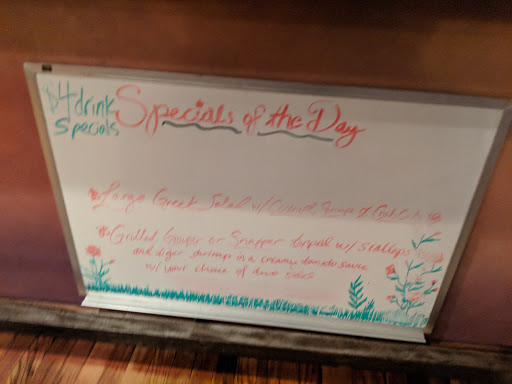 $4 drink
specials
Specials of the Day
Large Greek Salad w/
Grilled Grouper or Snapper topped w/ Scallops
and tiger shrimp in a creamy tomato sauce
w/ your choice of two sides